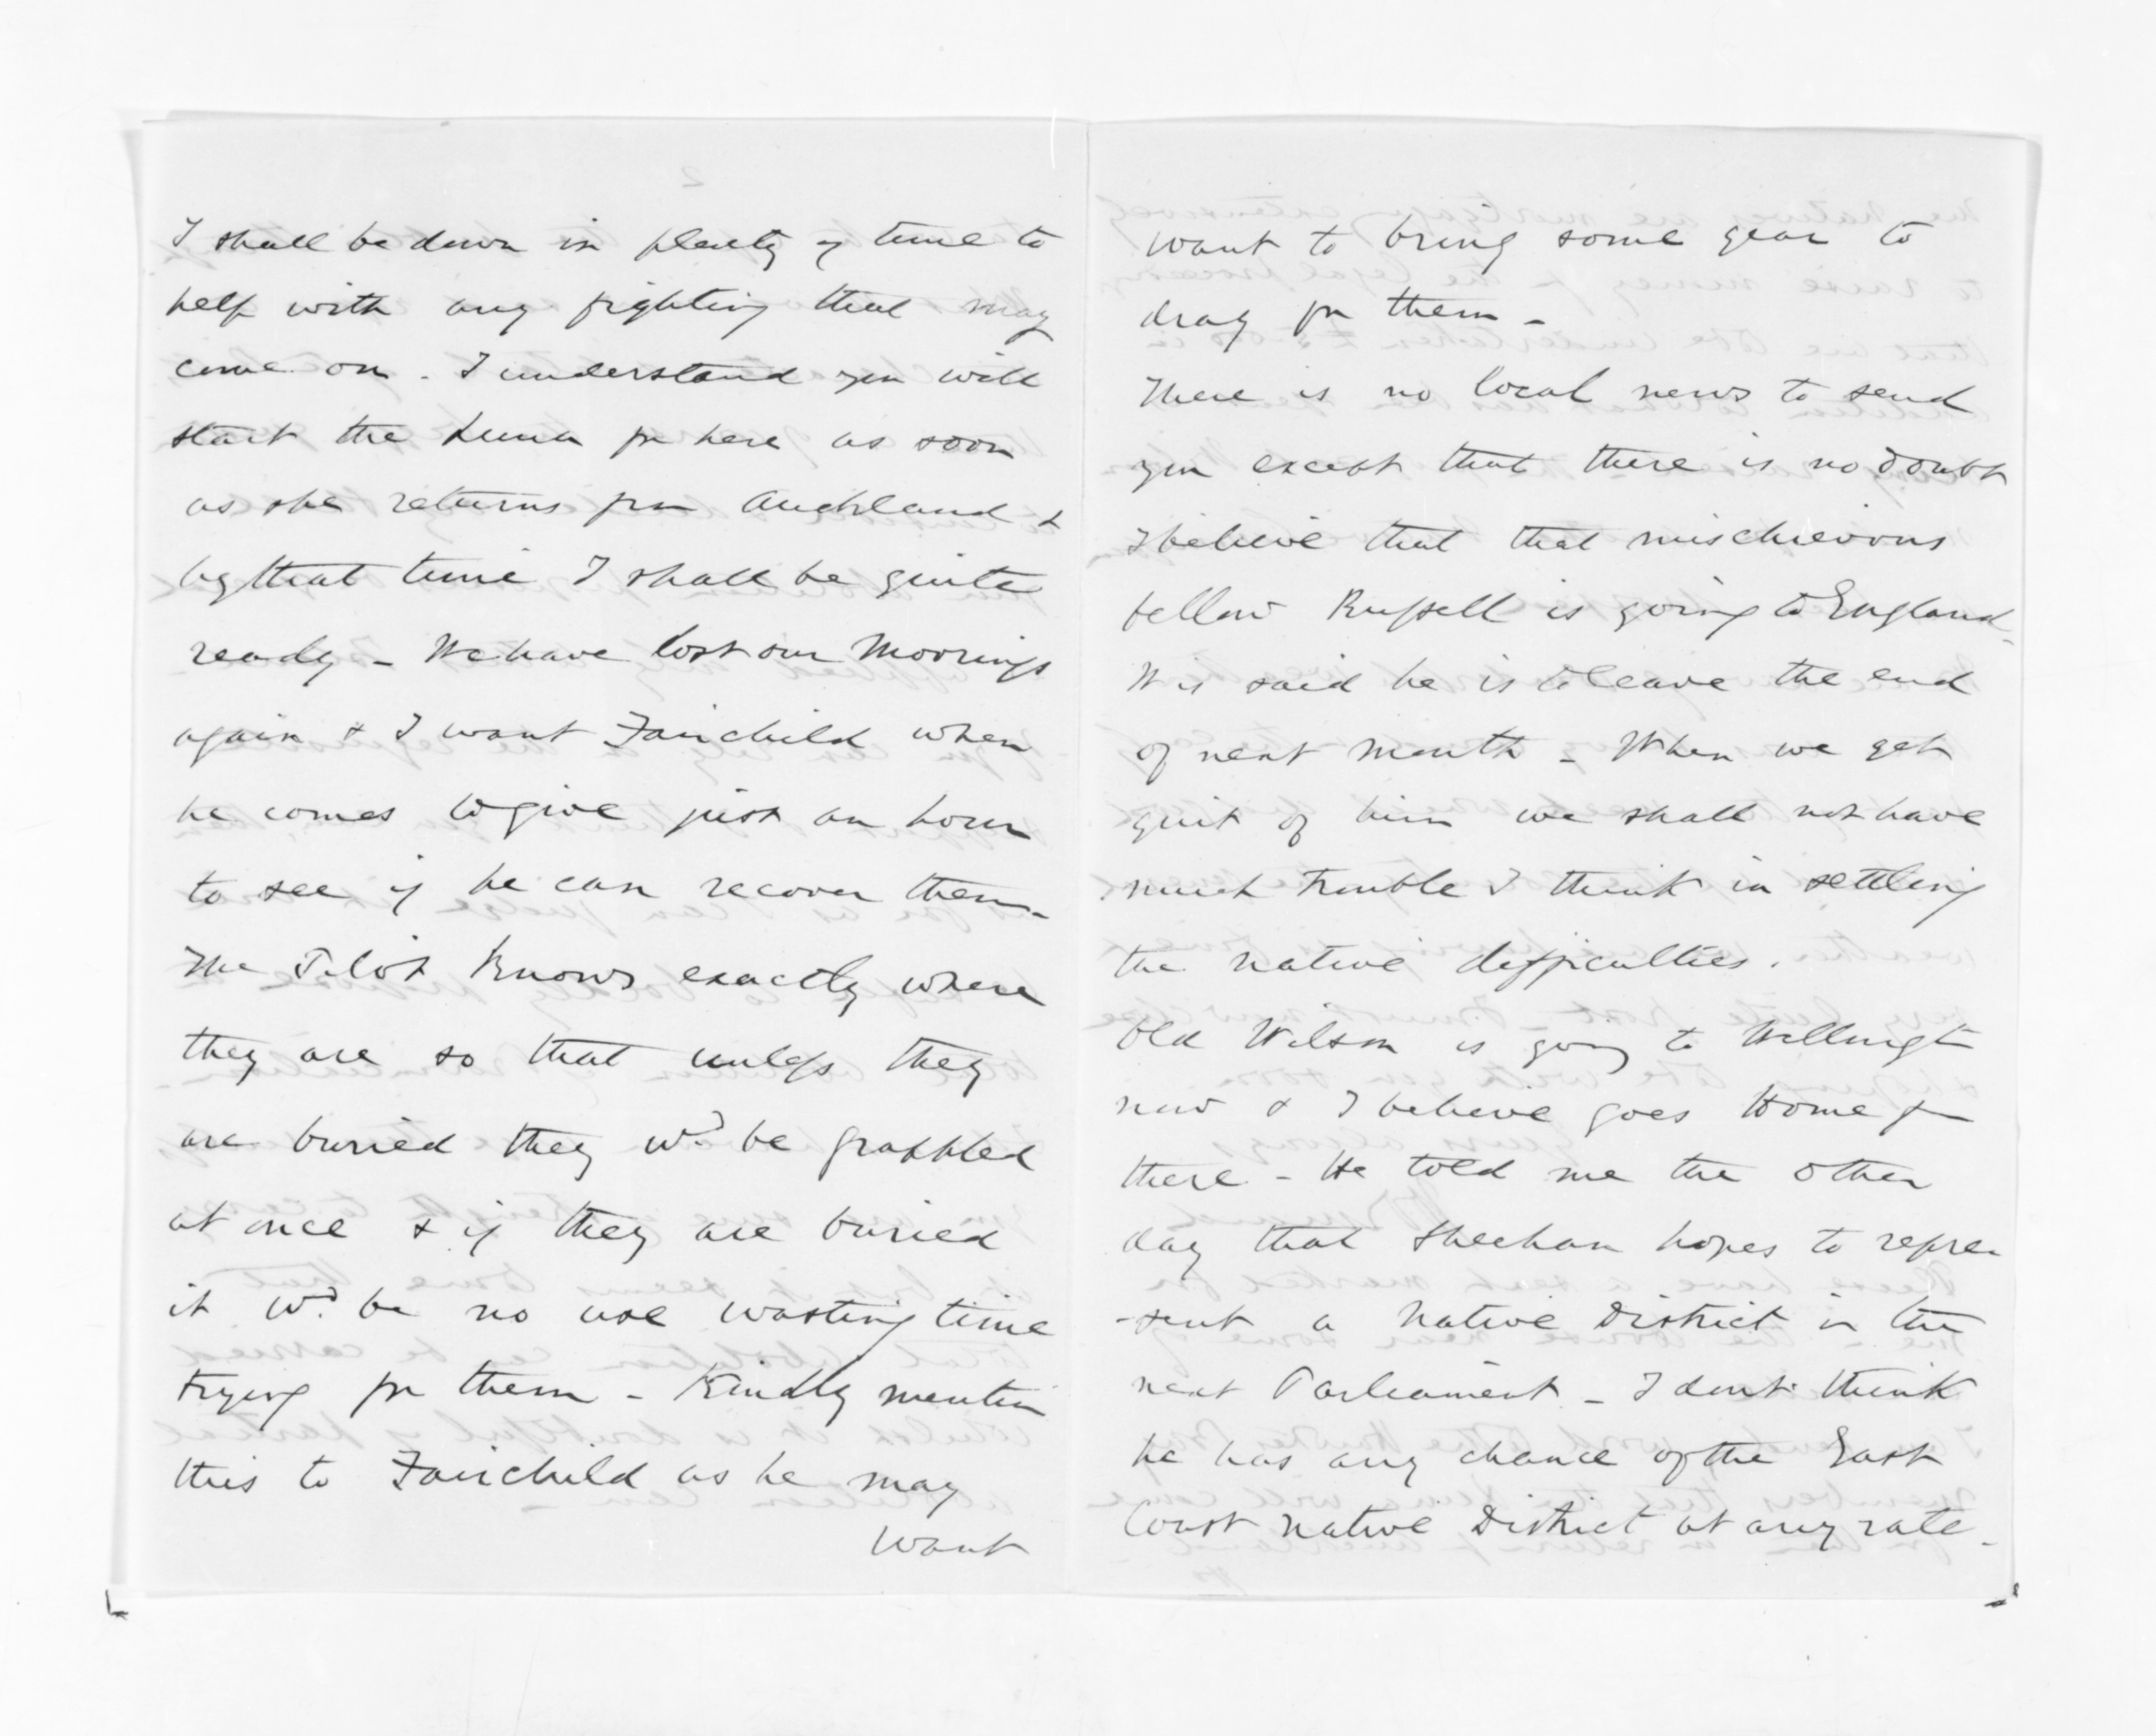 I shall be down in plenty of time to
help with any fighting that may
come on - I understand you will
start the Luna for here as soon
as she returns from Auckland &
by that time I shall be quite
ready - We have lost our Moorings
again & I want Fairchild when
he comes to give just an hour
to see if he can recover them -
The Pilot knows exactly where
they are so that unless they
are buried they wd. be grappled
at once & if they are buried
it wd. be no use wasting time
trying for them - Kindly mention
this to Fairchild as he may
want
want to bring some gear to
drag for them -
There is no local news to send
you except that there is no doubt
I believe that that mischievous
fellow Russell is going to England -
It is said he is to leave the end
of next month - When we get
quit of him we shall not have
much trouble I think in settling
the native difficulties.
Old Wilson is going to Wellington
now & I believe goes Home from
there - He told me the other
day that Sheehan hopes to repre-
-sent a Native District in the
next Parliament - I don't think
he has any chance of the East
Coast Native District at any rate -